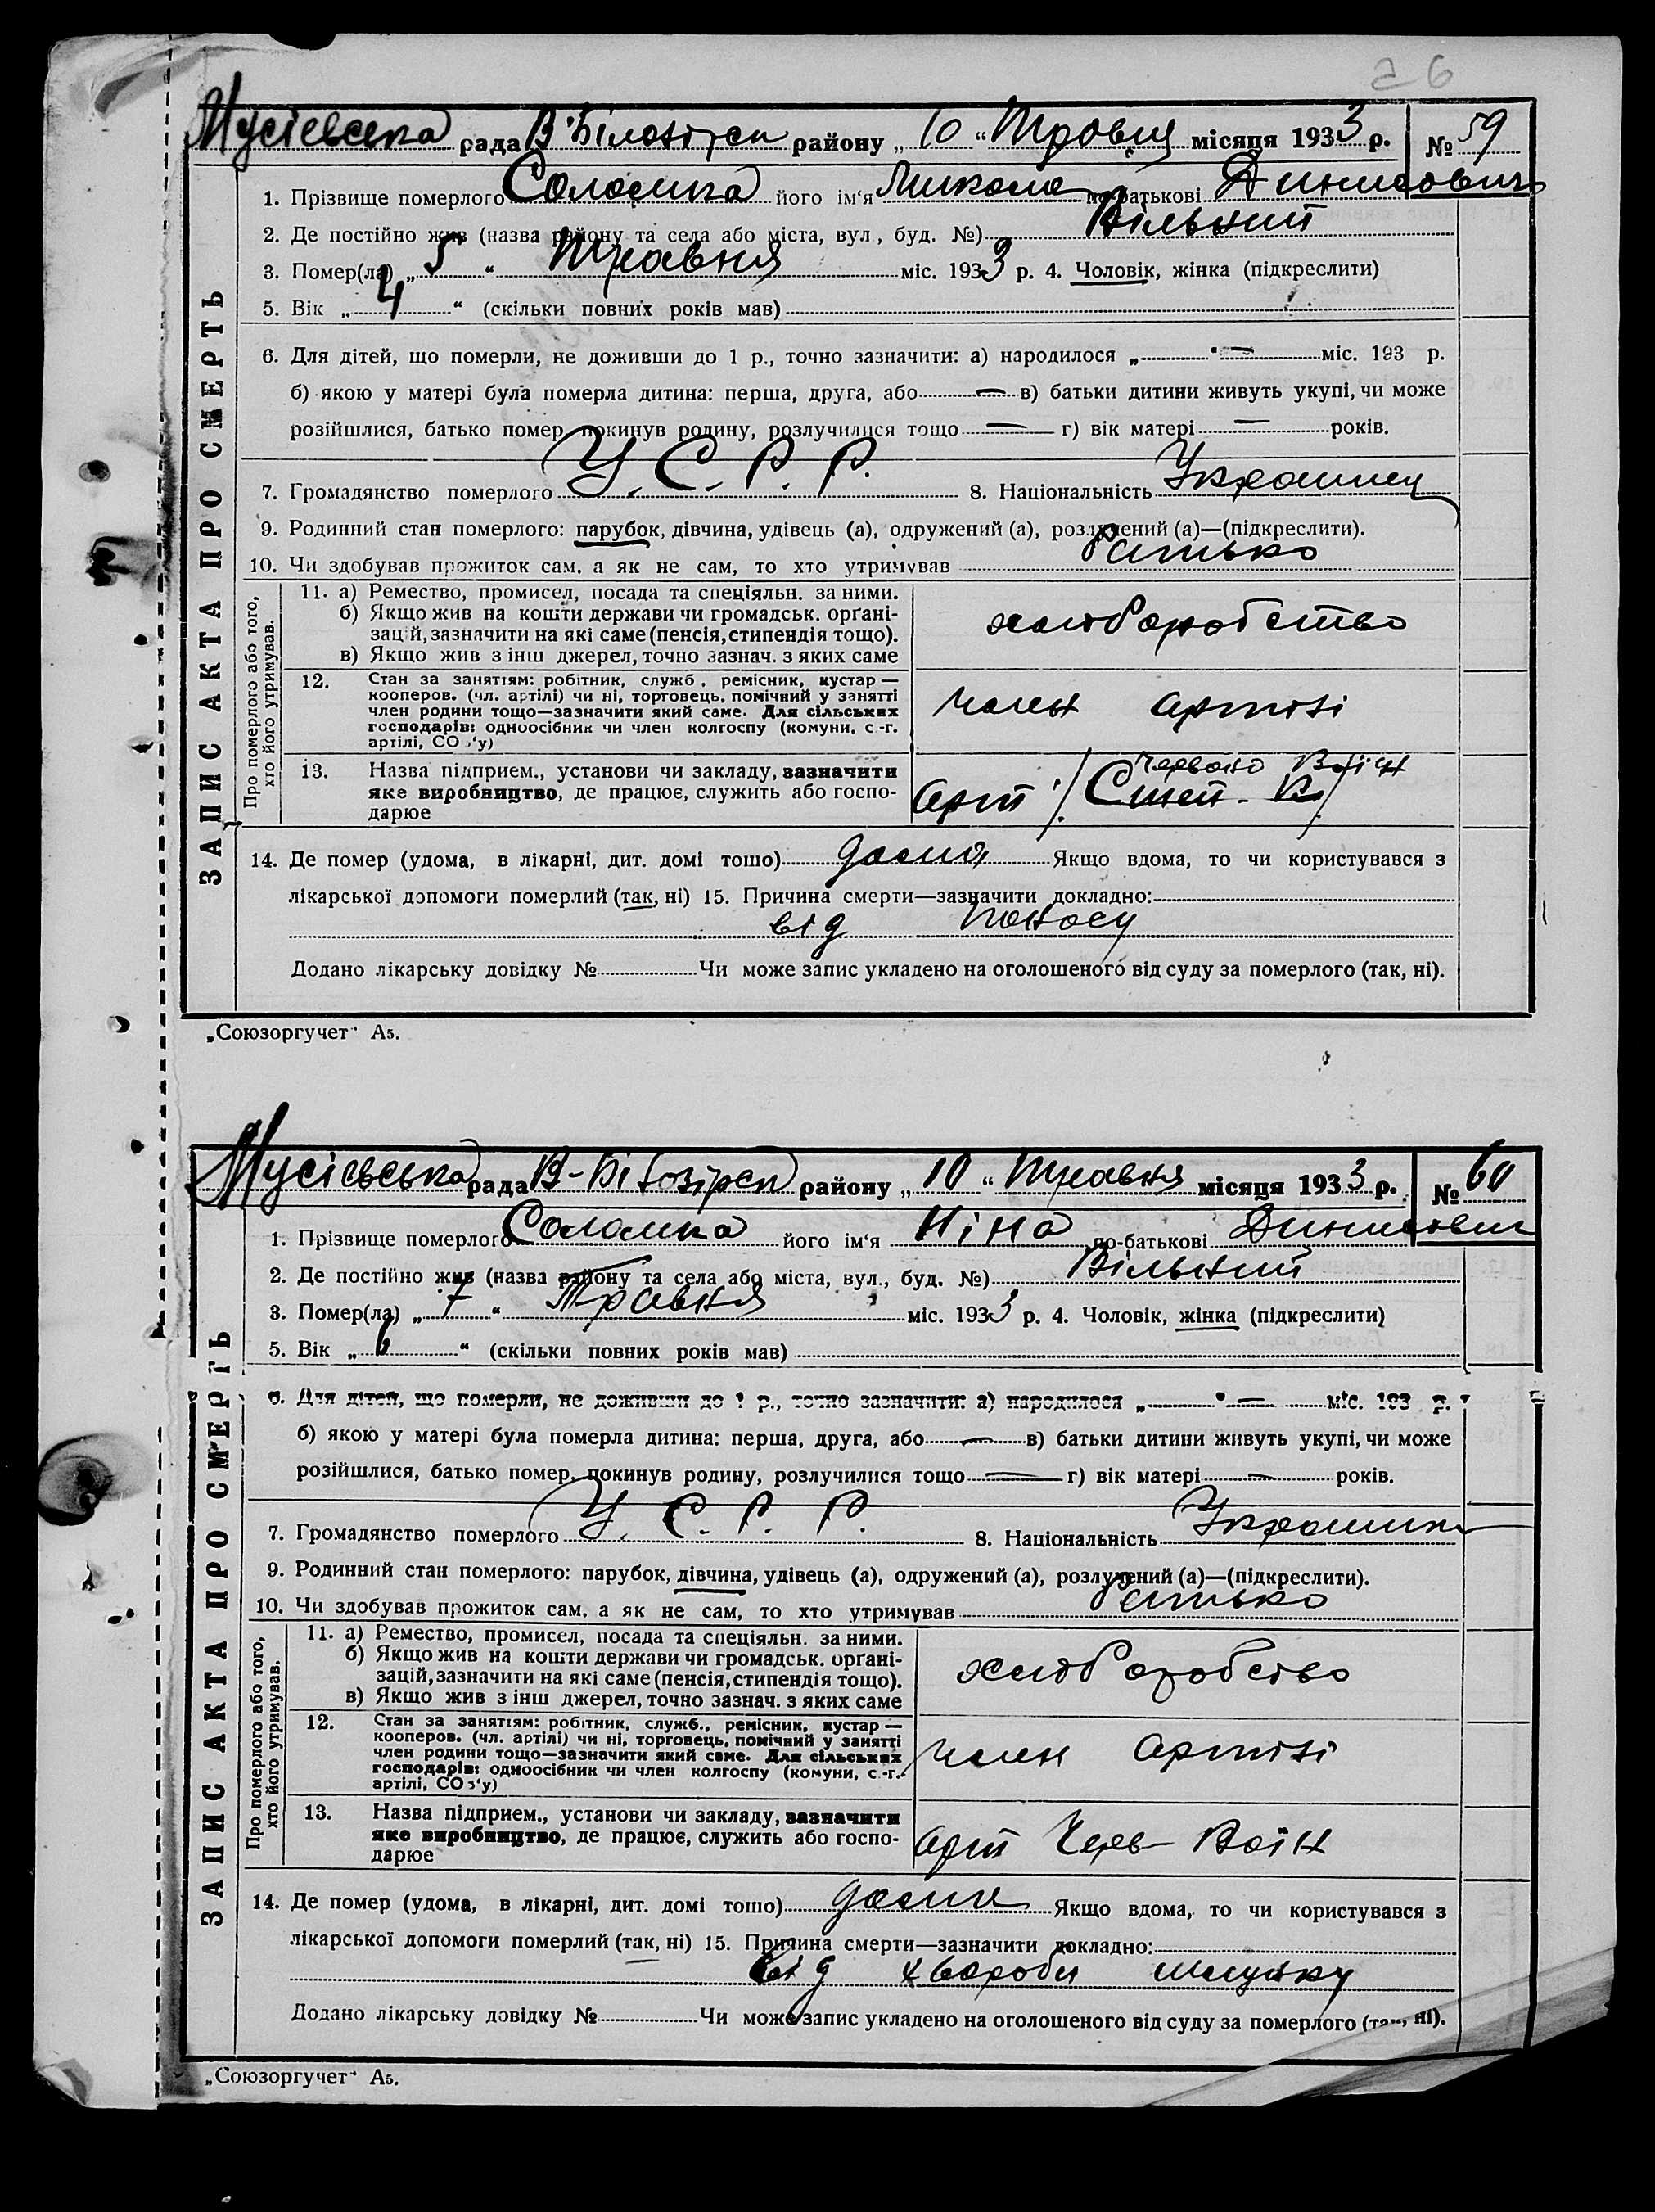 26
Мусіевська рада В-Білозірск району „10“ Травня місяця 1933 р. № 59
1. Прізвище померлого Соломка його ім‘я Микола по-батькові Динисович
2. Де постійно жив (назва району та села або міста, вул, буд. №) Вільний
3. Помер(ла) „5“ Травня міс. 1933 р. 4. Чоловік, жінка (підкреслити)
5. Вік „4“ (скільки повних років мав)
6. Для дітей, що померли, не доживши до 1 р., точно зазначити: а) народилося „ “ — міс. 193 р.
б) якою у матері була померла дитина: перша, друга, або — в) батьки дитини живуть укупі, чи може
розійшлися, батько помер, покинув родину, розлучилися тощо — г) вік матері — років.
7. Громадянство померлого У. С. Р. Р. 8. Національність Украинец
9. Родинний стан померлого: парубок, дівчина, удівець (а), одружений (а), розлучений (а)—(підкреслити).
10. Чи здобував прожиток сам, а як не сам, то хто утримував батько
11. а) Ремество, промисел, посада та спеціяльн. за ними.
б) Якщо жив на кошти держави чи громадськ. орґані-
зацій, зазначити на які саме (пенсія, стипендія тощо).
в) Якщо жив з інш джерел, точно зазнач. з яких саме
хлиборобство
12. Стан за занятіям: робітник, служб, ремісник, кустар —
кооперов. (чл. артілі) чи ні, торговець, помічний у занятті
член родини тощо—зазначити який саме. Для сільських
господарів: одноосібник чи член колгоспу (комуни, с.-г.
артілі, СО з‘у)
член артілі
13. Назва підприєм., установи чи закладу, зазначити
яке виробництво, де працює, служить або госпо-
дарює
Червоно Воїн
Арт
14. Де помер (удома, в лікарні, дит. домі тощо) дома Якщо вдома, то чи користувався з
лікарської допомоги померлий (так, ні) 15. Причина смерти—зазначити докладно:
від поносу
Додано лікарську довідку № Чи може запис укладено на оголошеного від суду за померлого (так, ні).
ЗАПИС АКТА ПРО СМЕРТЬ
Про померлого або того,
хто його утримував.
„Союзоргучет“ А5.
Мусієвська рада В-Білозірск району „10“ Травня місяця 1933 р. № 60
1. Прізвище померлого Соломка його ім‘я Ніна по-батькові Динисович
2. Де постійно жив (назва району та села або міста, вул., буд. №) Вільний
3. Помер(ла) „7“ Травня міс. 1933 р. 4. Чоловік, жінка (підкреслити)
5. Вік „6“ (скільки повних років мав)
6. Для дітей, що померли, не доживши до 1 р., точно зазначити: а) народилося „ “ — міс. 193 р.
б) якою у матері була померла дитина: перша, друга, або — в) батьки дитини живуть укупі, чи може
розійшлися, батько помер, покинув родину, розлучилися тощо — г) вік матері — років.
7. Громадянство померлого У. С. Р. Р. 8. Національність
9. Родинний стан померлого: парубок, дівчина, удівець (а), одружений (а), розлучений (а)—(підкреслити).
10. Чи здобував прожиток сам, а як не сам, то хто утримував батько
11. а) Ремество, промисел, посада та спеціяльн. за ними.
б) Якщо жив на кошти держави чи громадськ. орґані-
зацій, зазначити на які саме (пенсія, стипендія тощо).
в) Якщо жив з інш джерел, точно зазнач. з яких саме
хлиборобство
12. Стан за занятіям: робітник, служб., ремісник, кустар —
кооперов. (чл. артілі) чи ні, торговець, помічний у занятті
член родини тощо—зазначити який саме. Для сільських
господарів: одноосібник чи член колгоспу (комуни, с.-г.
артілі, СО з‘у)
член артілі
13. Назва підприєм., установи чи закладу, зазначити
яке виробництво, де працює, служить або госпо-
дарює
Арт Черв- Воїн
14. Де помер (удома, в лікарні, дит. домі тощо) дома Якщо вдома, то чи користувався з
лікарської допомоги померлий (так, ні) 15. Причина смерти—зазначити докладно:
від хвороби шлунку
Додано лікарську довідку № Чи може запис укладено на оголошеного від суду за померлого (так, ні).
ЗАПИС АКТА ПРО СМЕРТЬ
Про померлого або того,
хто його утримував.
„Союзоргучет“ А5.